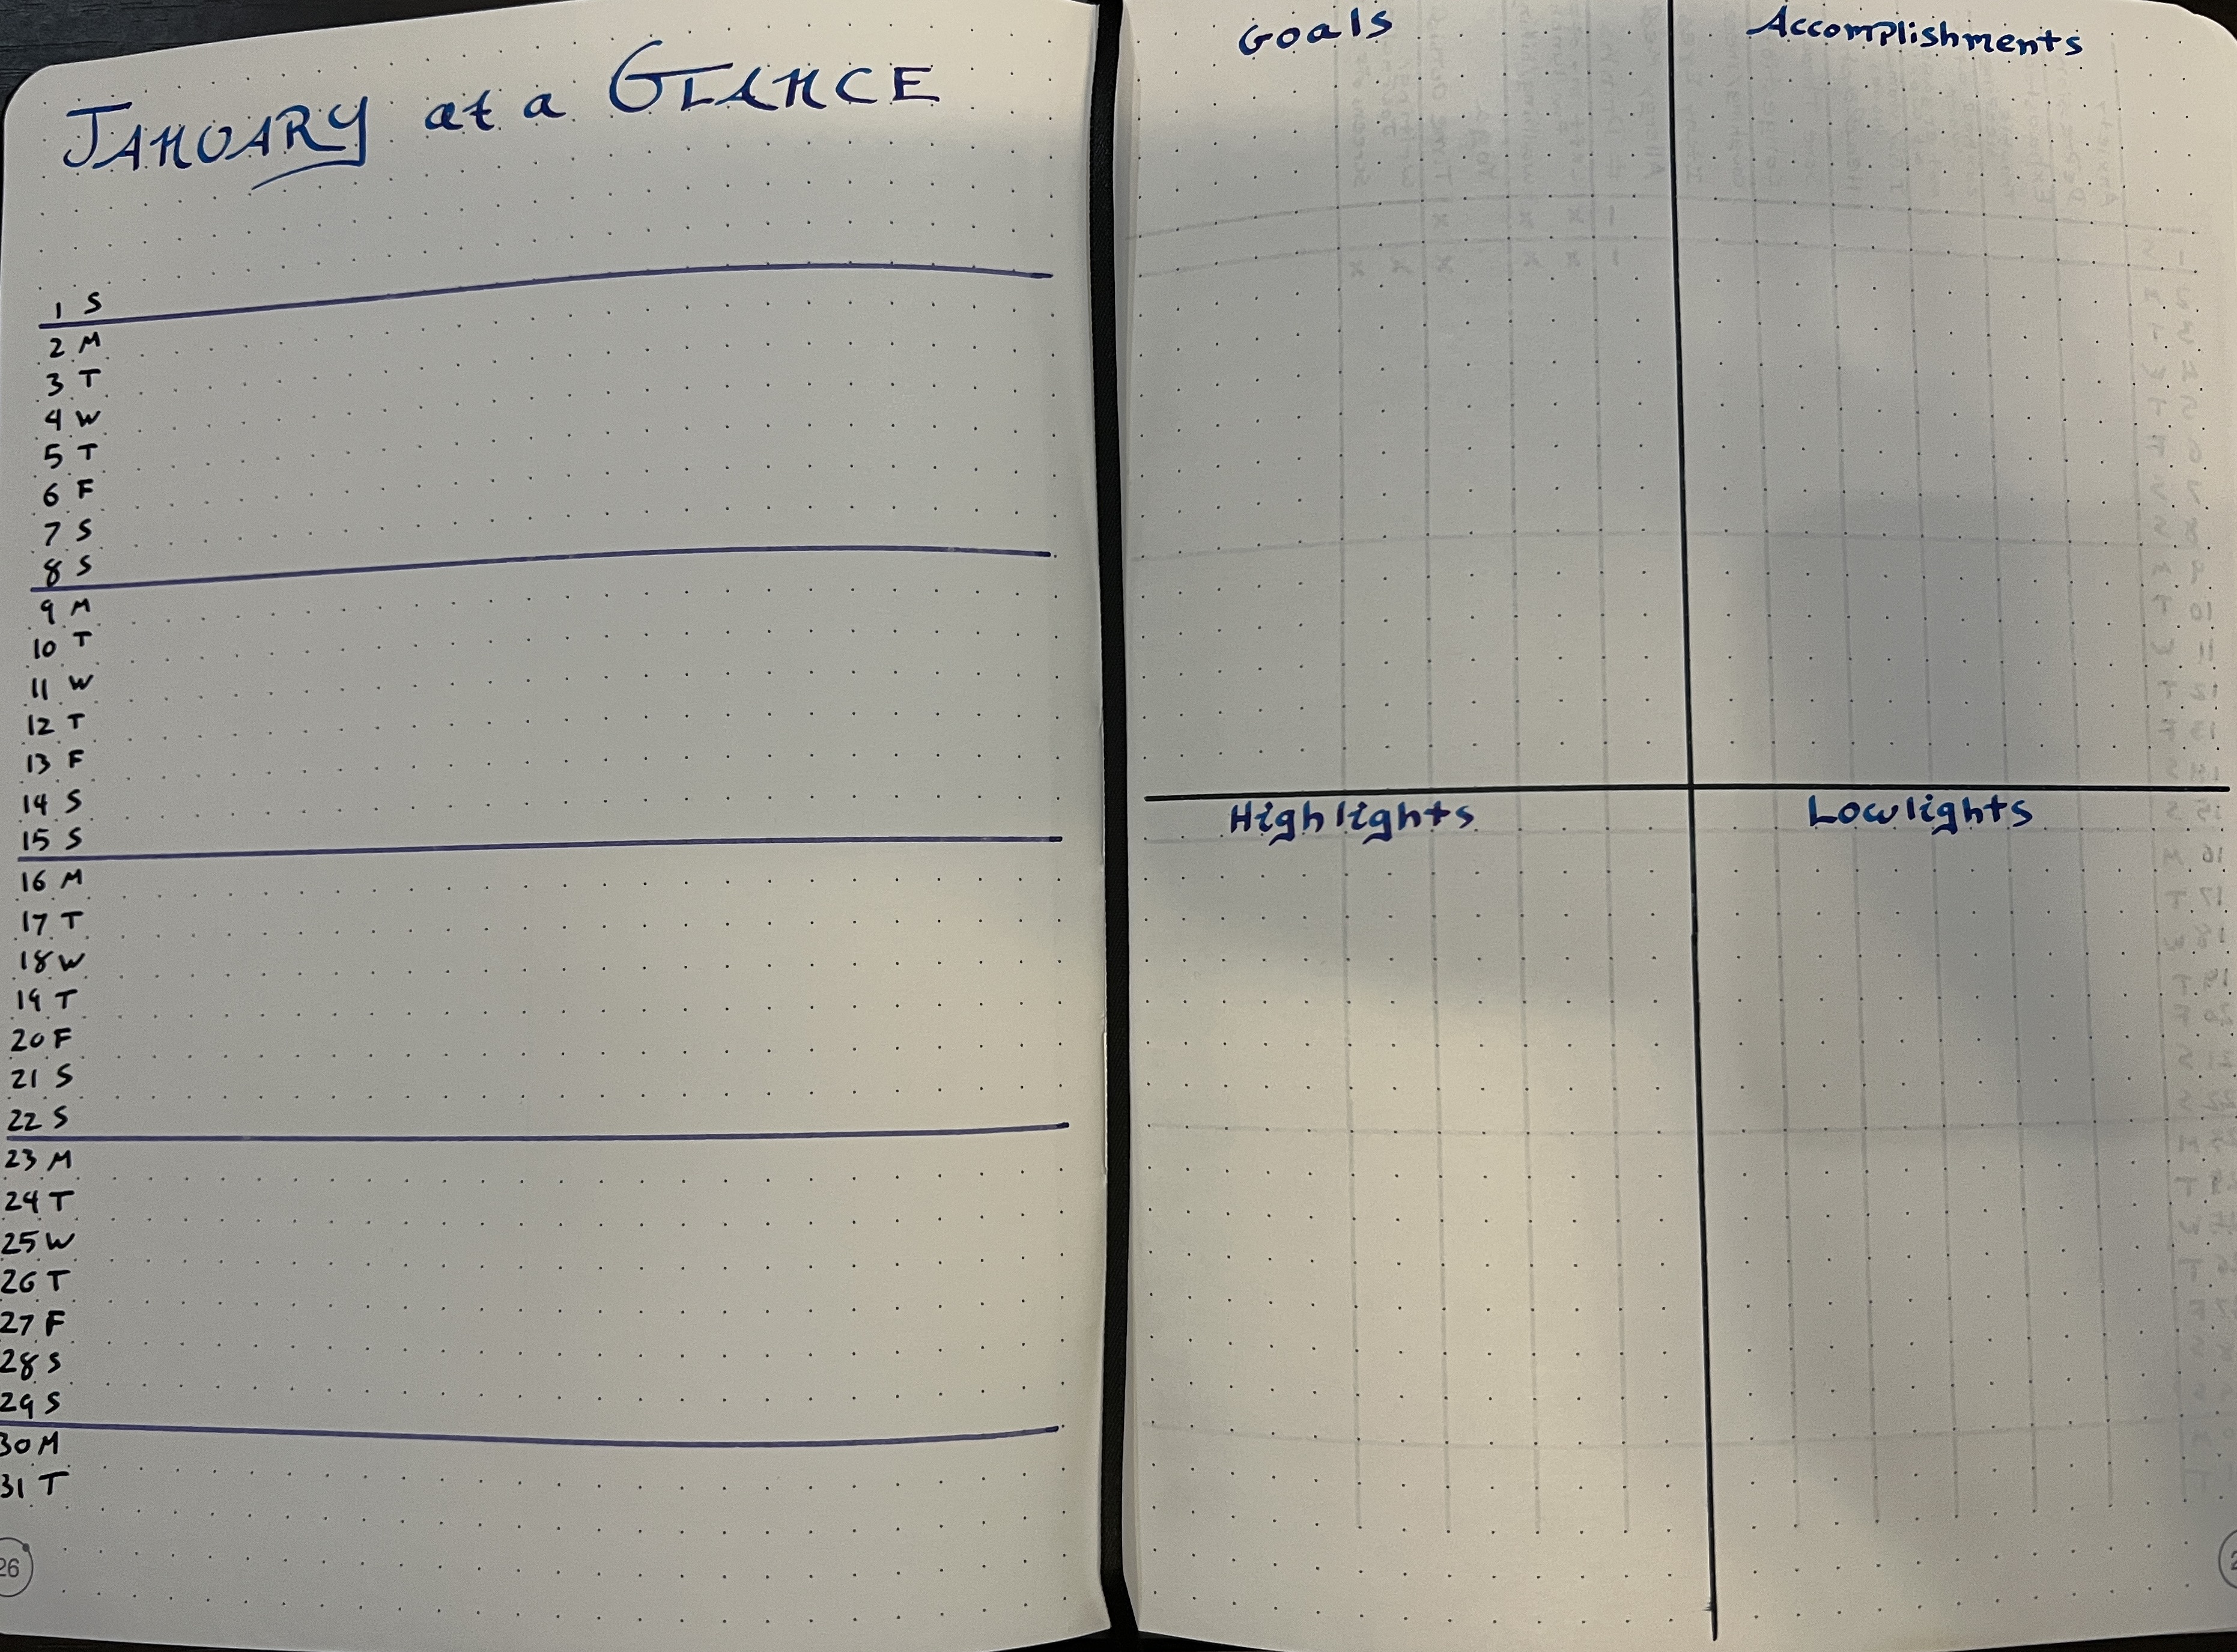 JANUARY at a GLANCE
1 S
2 M
3 T
4 W
5 T
6 F
7 S
8 S
9 M
10 T
11 W
12 T
13 F
14 S
15 S
16 M
17 T
18 W
19 T
20 F
21 S
22 S
23 M
24 T
25 W
26 T
27 F
28 S
29 S
30 M
31 T
26
Goals
Accomplishments
Highlights
Lowlights